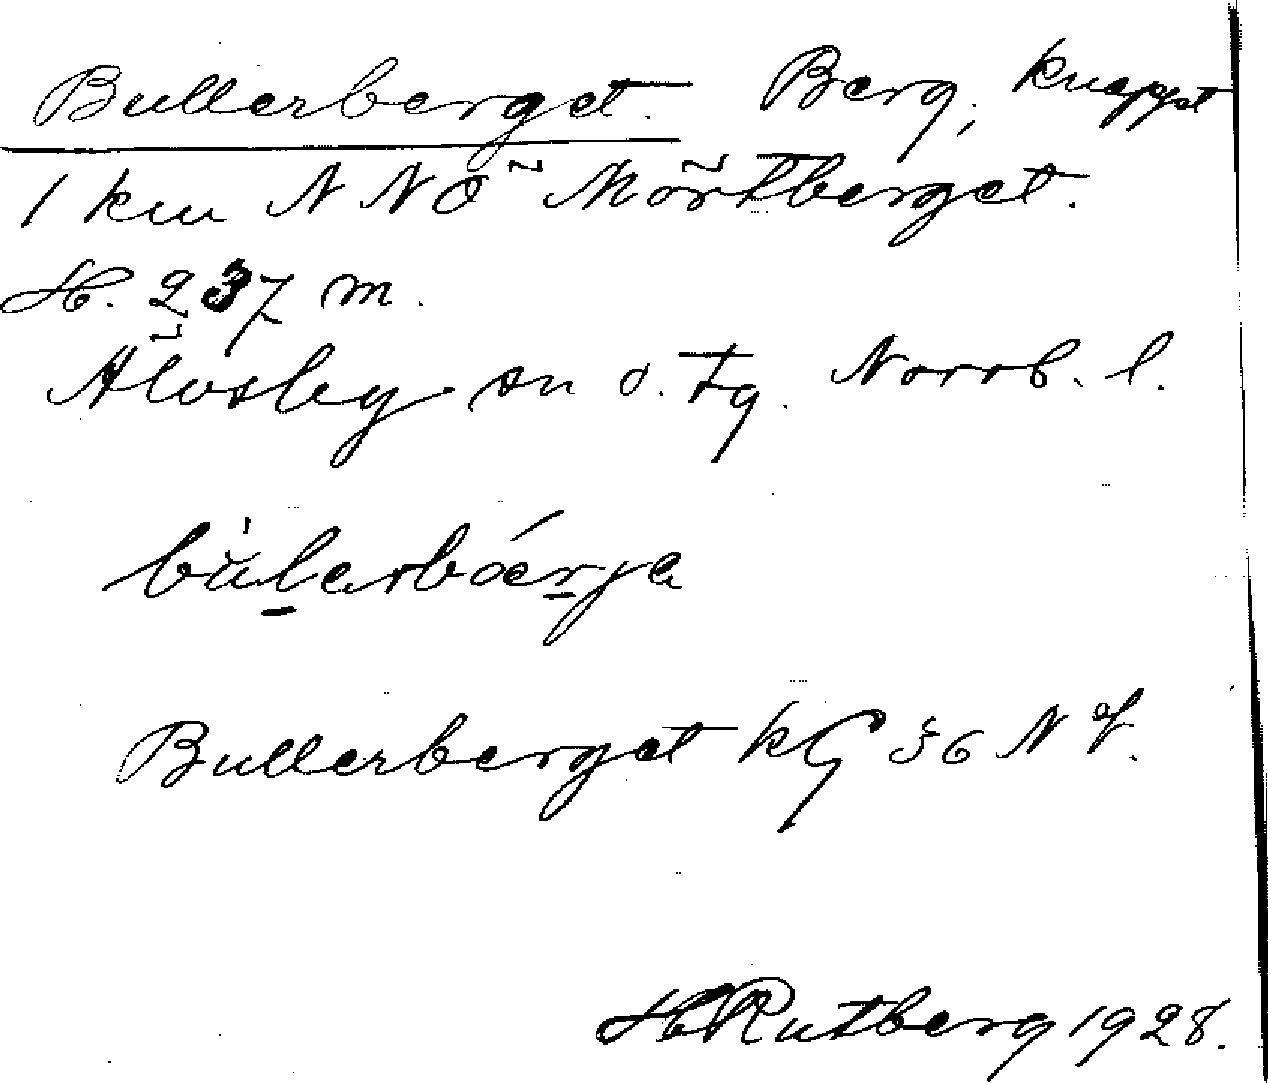 Bullerberget. Berg, knappt
1 km NNÖ Mörtberget.
H. 237 m.
Älvsby sn o. tg. Norrb. l.
Bullerberget kG 36 N
H Rutberg 1928.